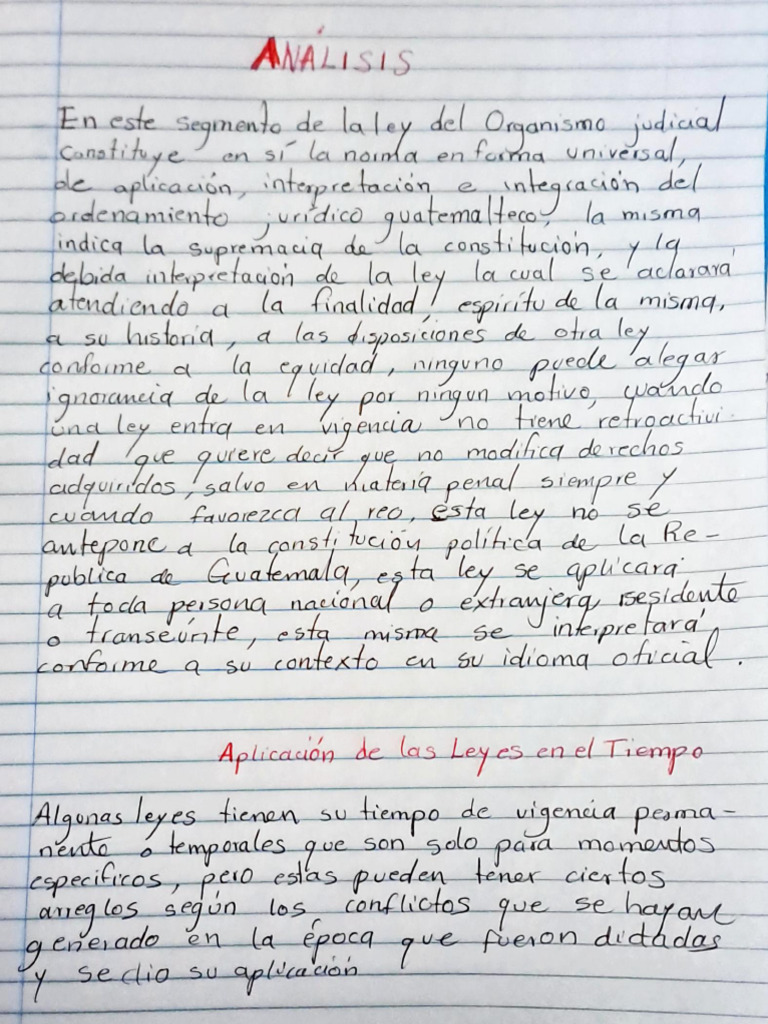 ANÁLISIS
En este segmento de la ley del Organismo judicial
Constituye en sí la norma en forma universal,
de aplicación, interpretación e integración del
ordenamiento jurídico guatemalteco, la misma
indica la supremacia de la constitución, y la
debida interpretación de la ley la cual se aclarará
atendiendo a la finalidad, espiritu de la misma,
a su historia, a las disposiciones de otra ley
conforme a la equidad, ninguno puede alegar
ignorancia de la ley por ningun motivo, cuando
una ley entra en vigencia no tiene retroactivi-
dad que quiere decir que no modifica derechos
adquiridos, salvo en materia penal siempre y
cuando favorezca al reo, esta ley no se
antepone a la constitución política de la Re-
publica de Guatemala, esta ley se aplicará
a toda persona nacional o extranjera, residente
o transeúnte, esta misma se interpretará
conforme a su contexto en su idioma oficial.
Aplicación de las Leyes en el Tiempo
Algunas leyes tienen su tiempo de vigencia perma-
nente o temporales que son solo para momentos
especificos, pero estas pueden tener ciertos
arreglos según los conflictos que se hayan
generado en la época que fueron dictadas
y se dio su aplicación